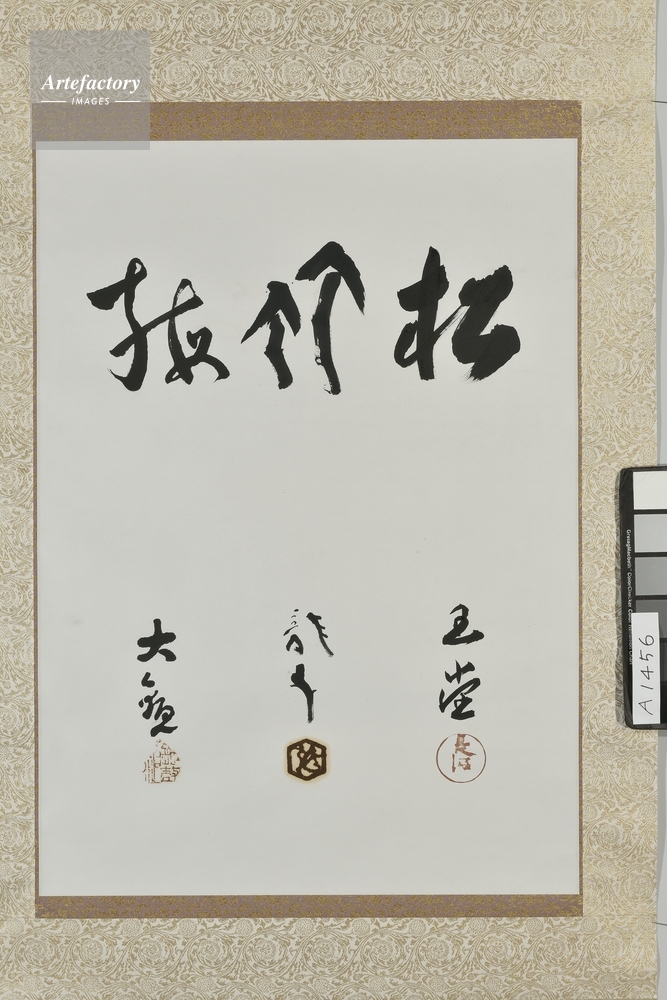 Artefactory
IMAGES
松竹梅
玉堂
龍子
大観
GretagMacbeth™ ColorChecker
A1456